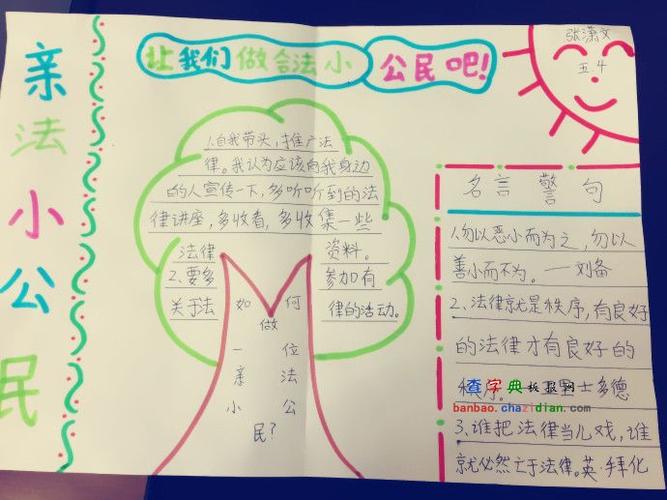 亲法小公民
让我们做合法小公民吧!
张潇文
五.4
1.自我带头,推广法
律。我认为应该向我身边
的人宣传一下,多听听到的法
律讲座,多收看,多收集一些
法律资料。
2.要多参加有
关于法律的活动。
如何
做
一位
亲法
小公
民?
名言警句
1.勿以恶小而为之,勿以
善小而不为。——刘备
2.法律就是秩序,有良好
的法律才有良好的
秩序。里士多德
3.谁把法律当儿戏,谁
就必然亡于法律。英·拜化
查字典板报网
banbao.chazidian.com